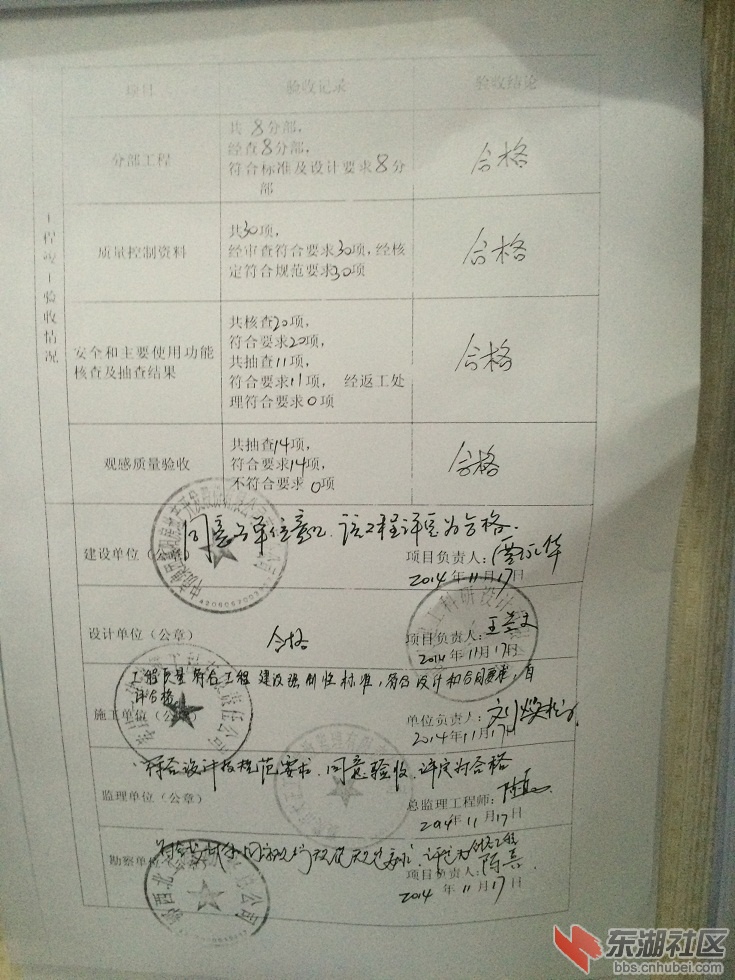 项目 验收记录 验收结论
工程竣工验收情况
分部工程
共 8分部，
经查8分部，
符合标准及设计要求8分
部
合格
质量控制资料
共30项，
经审查符合要求30项，经核
定符合规范要求30项
合格
安全和主要使用功能
核查及抽查结果
共核查20项，
符合要求20项，
共抽查11项，
符合要求11项， 经返工处
理符合要求0项
合格
观感质量验收
共抽查14项，
符合要求14项，
不符合要求 0项
合格
同意各单位意见，该工程评定为合格.
建设单位（公章）
项目负责人：
2014年11月17日
设计单位（公章） 合格
项目负责人：
2014年11月17日
工程质量符合工程建设强制性标准，符合设计和合同要求，自
评合格
施工单位（公章）
单位负责人：
2014年11月17日
符合设计及规范要求，同意验收，评定为合格
监理单位（公章）
总监理工程师：
2014年11月17日
勘察单位（公章）
项目负责人：
2014年11月17日
东湖社区
bbs.cnhubei.com